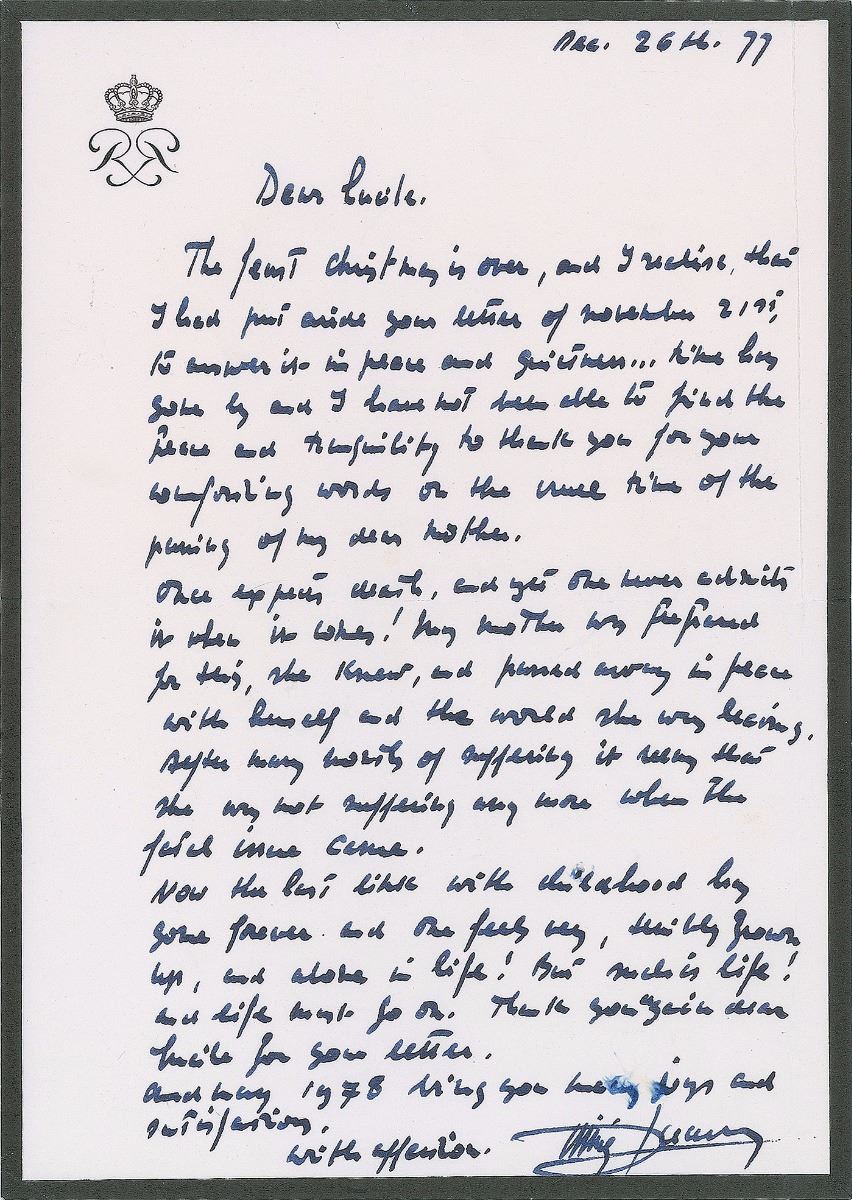 Dec. 26th. 77
RR
Dear Lucile.
The feast christmas is over, and I realise, that
I had put aside your letter of november 21st,
to answer it in peace and quietness... time has
gone by and I have not been able to find the
peace and tranquility to thank you for your
comforting words on the cruel time of the
passing of my dear mother.
One expects death, and yet one never admits
it when it comes! My mother was prepared
for this, she knew, and passed away in peace
with herself and the world she was leaving.
After many months of suffering it seems that
she was not suffering any more when the
fatal issue came.
Now the last link with childhood has
gone forever and one feels very, terribly grown
up, and alone in life! But such is life!
and life must go on. Thank you again dear
Lucile for your letter.
And may 1978 bring you many joys and
satisfaction.
with affection.